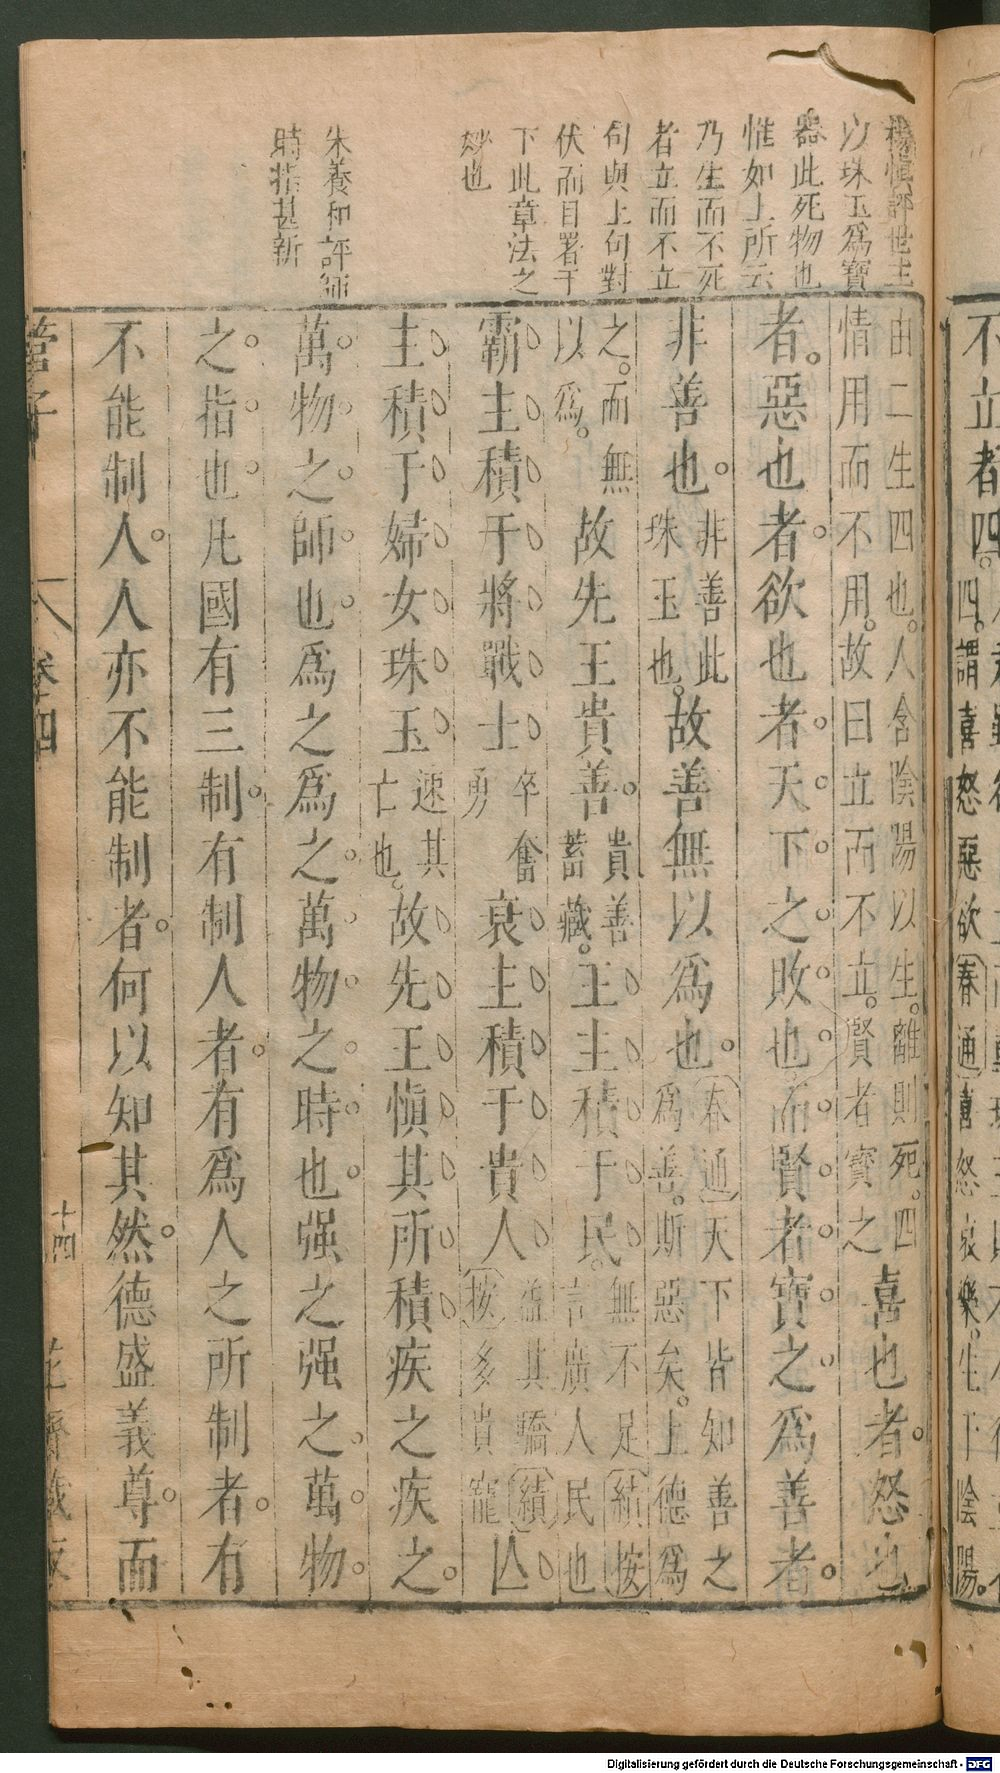 不立者四
四。謂喜怒惡欲春通喜怒哀樂。生于陰陽。
楊愼評世主
以珠玉爲寶
器此死物也
惟如上所云
乃生而不死
者立而不立
句與上句對
伏而目署于
下此章法之
妙也
朱養和評師
時指甚新
由二生四也。人含陰陽以生。離則死。四
情用而不用。故曰立而不立。賢者寶之
喜也者。怒也
者。惡也者。欲也者。天下之敗也。而賢者。寶之。爲善者。
非善也。
非善此
珠玉也。
故善無以爲也。
春通天下皆知善之
爲善。斯惡矣。上德爲
之。而無
以爲。
故先王貴善。
貴善
蓄藏。
王主積于民。
無不足績按
言廣人民也
霸主積于將戰士
卒奮
勇
衰主積于貴人
益其驕績
按多貴寵
亡
主積于婦女珠玉
速其
亡也。
故先王愼其所積疾之疾之。
萬物之師也。爲之爲之。萬物之時也。强之强之。萬物。
之。指也。凡國有三制。有制人者。有爲人之所制者。有
不能制人。人亦不能制者。何以知其然。德盛義尊。而
管子
卷四
十四
花齋藏板
Digitalisierung gefördert durch die Deutsche Forschungsgemeinschaft - DFG